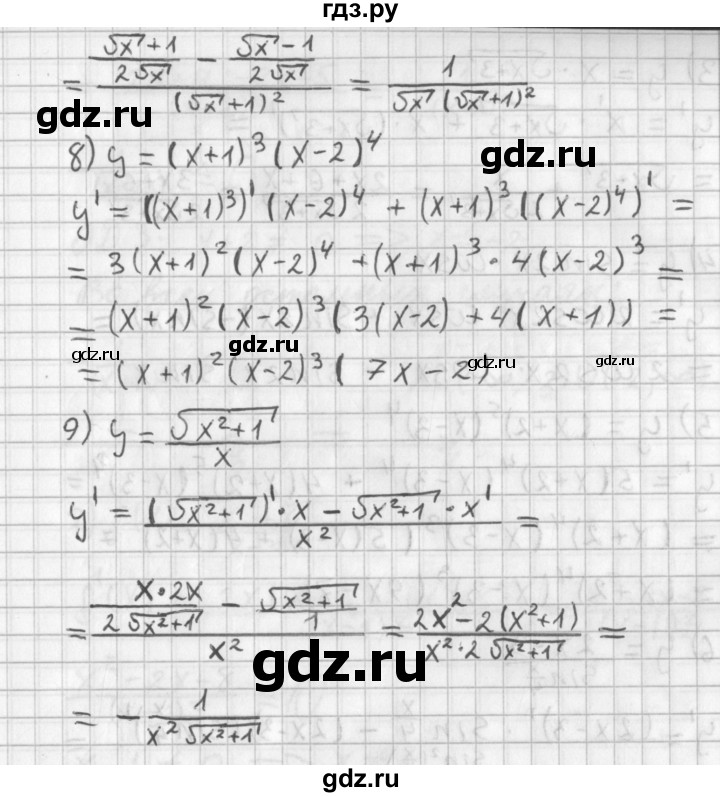 гдз.ру
= ((√x + 1)/(2√x) − (√x − 1)/(2√x))/(√x + 1)² = 1/(√x (√x + 1)²)
gdz.ru
gdz.ru
8) y = (x+1)³(x−2)⁴
y' = ((x+1)³)'(x−2)⁴ + (x+1)³((x−2)⁴)' =
= 3(x+1)²(x−2)⁴ + (x+1)³ · 4(x−2)³ =
= (x+1)²(x−2)³(3(x−2) + 4(x+1)) =
gdz.ru
gdz.ru
gdz.ru
gdz.ru
= (x+1)²(x−2)³(7x−2)
9) y = √(x²+1)/x
y' = ((√(x²+1))' · x − √(x²+1) · x')/x² =
= ((x·2x)/(2√(x²+1)) − √(x²+1)/1)/x² = (2x² − 2(x²+1))/(x²·2√(x²+1)) =
gdz.ru
gdz.ru
= − 1/(x²√(x²+1))
gdz.ru